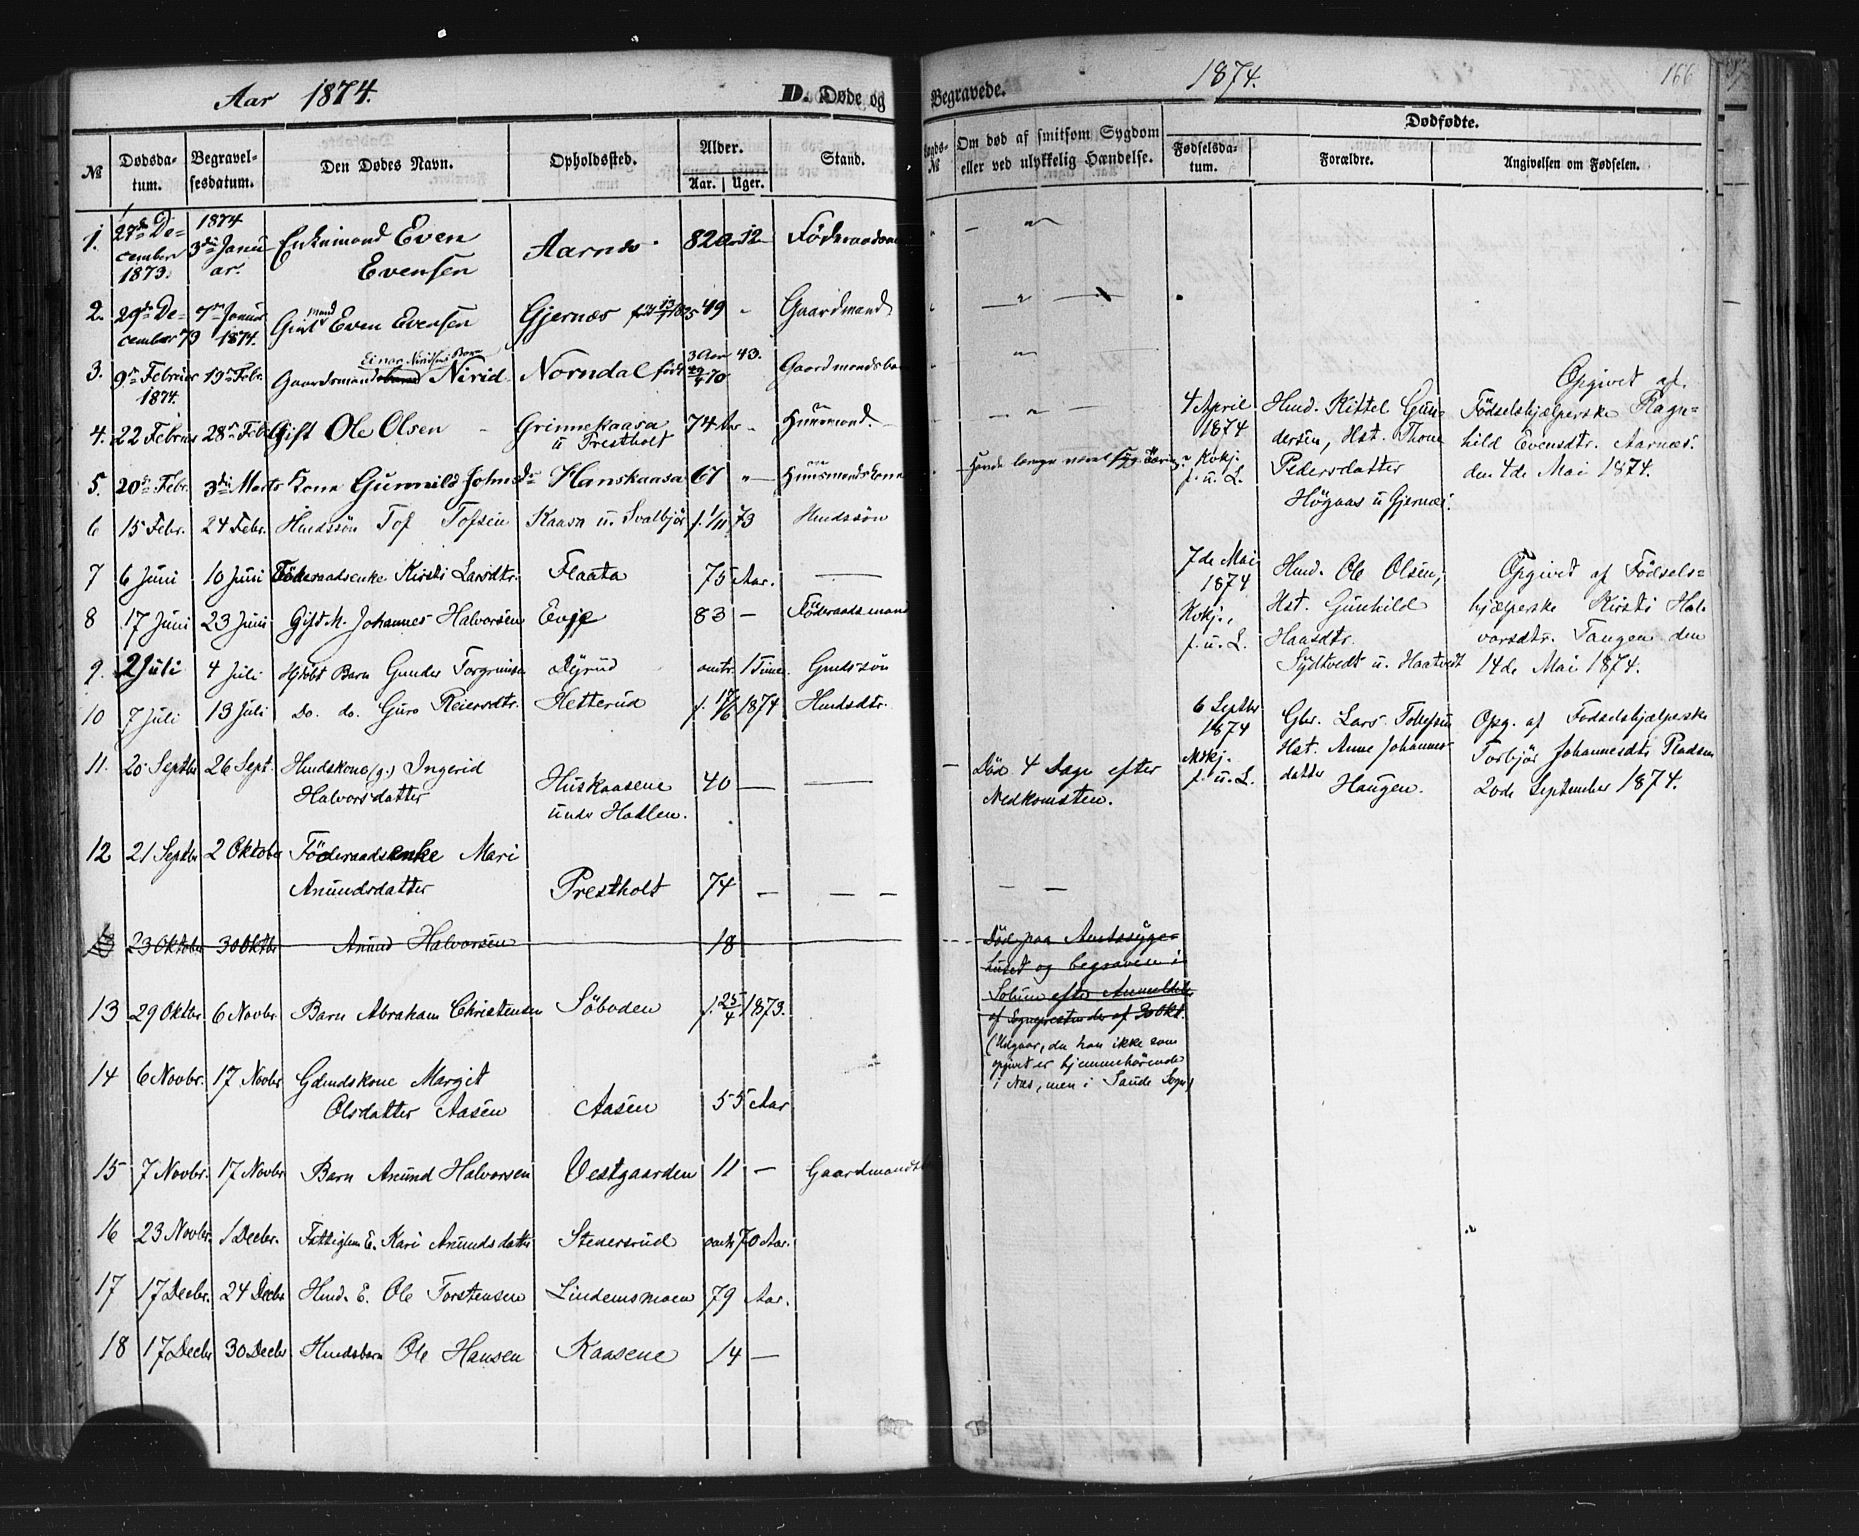 Aar 1874.
D. Døde og
No
Dødsda-
tum.
Begravel-
sesdatum.
Den Dødes Navn.
Opholdssted.
Alder.
Aar. Uger.
Stand.
1. 27de De-
cember
1873.
1874
3die Janu
ar.
Enkemand Even
Evensen
Aarnæs 82 Aar 12
2. 29de De-
cember 73
7de Januar
1874.
Gift mand Even Evensen
Gjernes 49 Gaardmand
3. 9de Februar
1874.
19de Febr.
Gaardsmands Nirid
Norndal født
3 Aar 43.
70
4. 22 Februar 28de Febr Gift Ole Olsen
Grinnekaasa
u Prestholt
74 Aar
5. 20de Febr. 3die Marts Kone Gunnild Johns Hanskaasa 67 Huusmandskone
6 15 Febr. 24 Febr. Hmdssøn Tof Tofsen Kaasa u. Svalbjør f. 1/11 73 Hmdssøn
7 6 Juni 10 Juni Föderaadsenke Kirsti Larsdtr. Flaata 75 Aar. —
8 17 Juni 23 Juni Gift M. Johannes Halvorsen Evje 83 — Föderaadsmand
9. 2 Juli 4 Juli Hjdöbt Barn Gunder Torgrimsen Dyrud omtr. 1 Time. Gmdssøn
10 7 Juli 13 Juli Do. do. Guro Reiersdtr. Hetterud f. 17/6 1874 Hmdsdtr.
11. 20 Septbr 26 Sept. Hmdskone (g.) Ingerid
Halvorsdatter
Huskaasene
under Hadlen.
40 — —
12 21 Septbr 2 Oktober Föderaadsenke Mari
Anundsdatter Prestholt 74 — — —
23 Oktober 30 Oktbr Anund Halvorsen 18
13 29 Oktbr. 6 Novbr. Barn Abraham Christensen Søboden f. 25/4 1873.
14 6 Novbr. 17 Novbr Gdmdskone Margit
Olsdatter Aasen Aasen 55 Aar
15 7 Novbr. 17 Novbr Barn Anund Halvorsen Vestgaarden 11 —
16 23 Novbr. 1 Decbr. Fattiglem E. Kari Anundsdatter Stenersrud 70 Aar.
17 17 Decbr. 24 Decbr Hmd. E. Ole Torstensen Lindemsmoen 79 Aar.
18 17 Decbr 30 Decbr Hmdsbarn Ole Hansen Kaasene 14 —
Begravede.
1874.
166
No
Om død af smitsom Sygdom
eller ved ulykkelig Hændelse.
Dødfødte.
Fødselsda-
tum.
Forældre.
Angivelsen om Fødselen.
Havde længe været
Død 4 Dage efter
Nedkomsten.
Død paa Amtssyge-
huset og begraven i
Solum efter Anmeldelse
af Sognepresten der af 30 Okt.
(Udgaar, da han ikke som
opgivet er hjemmehørende
i Næs, men i Saude Sogn)
4 April
1874
Kvkj.
f. u. L.
Hmd. Kittel Gun-
dersen, Hst. Thone
Pedersdatter
Högaas u Gjernes.
Opgivet af
Fødselshjælperske Ragn-
hild Evensdtr. Aarnæs.
den 4de Mai 1874.
7de Mai
1874
Kvkj.,
f. u. L.
Hmd. Ole Olsen,
Hst. Gunhild
Haasdtr.
Sydtvedt u. Haatvedt
Opgivet af Fødsels-
hjælperske Kirsti Hal-
vorsdtr. Tangen den
14de Mai 1874.
6 Septbr
1874
Mkkj.
f. u. L.
Gbr. Lars Tollefsen
Hst. Anne Johannes-
datter
Haugen.
Opg. af Fødselshjælperske
Torbjør Johannesdtr Pladsen
20de September 1874.